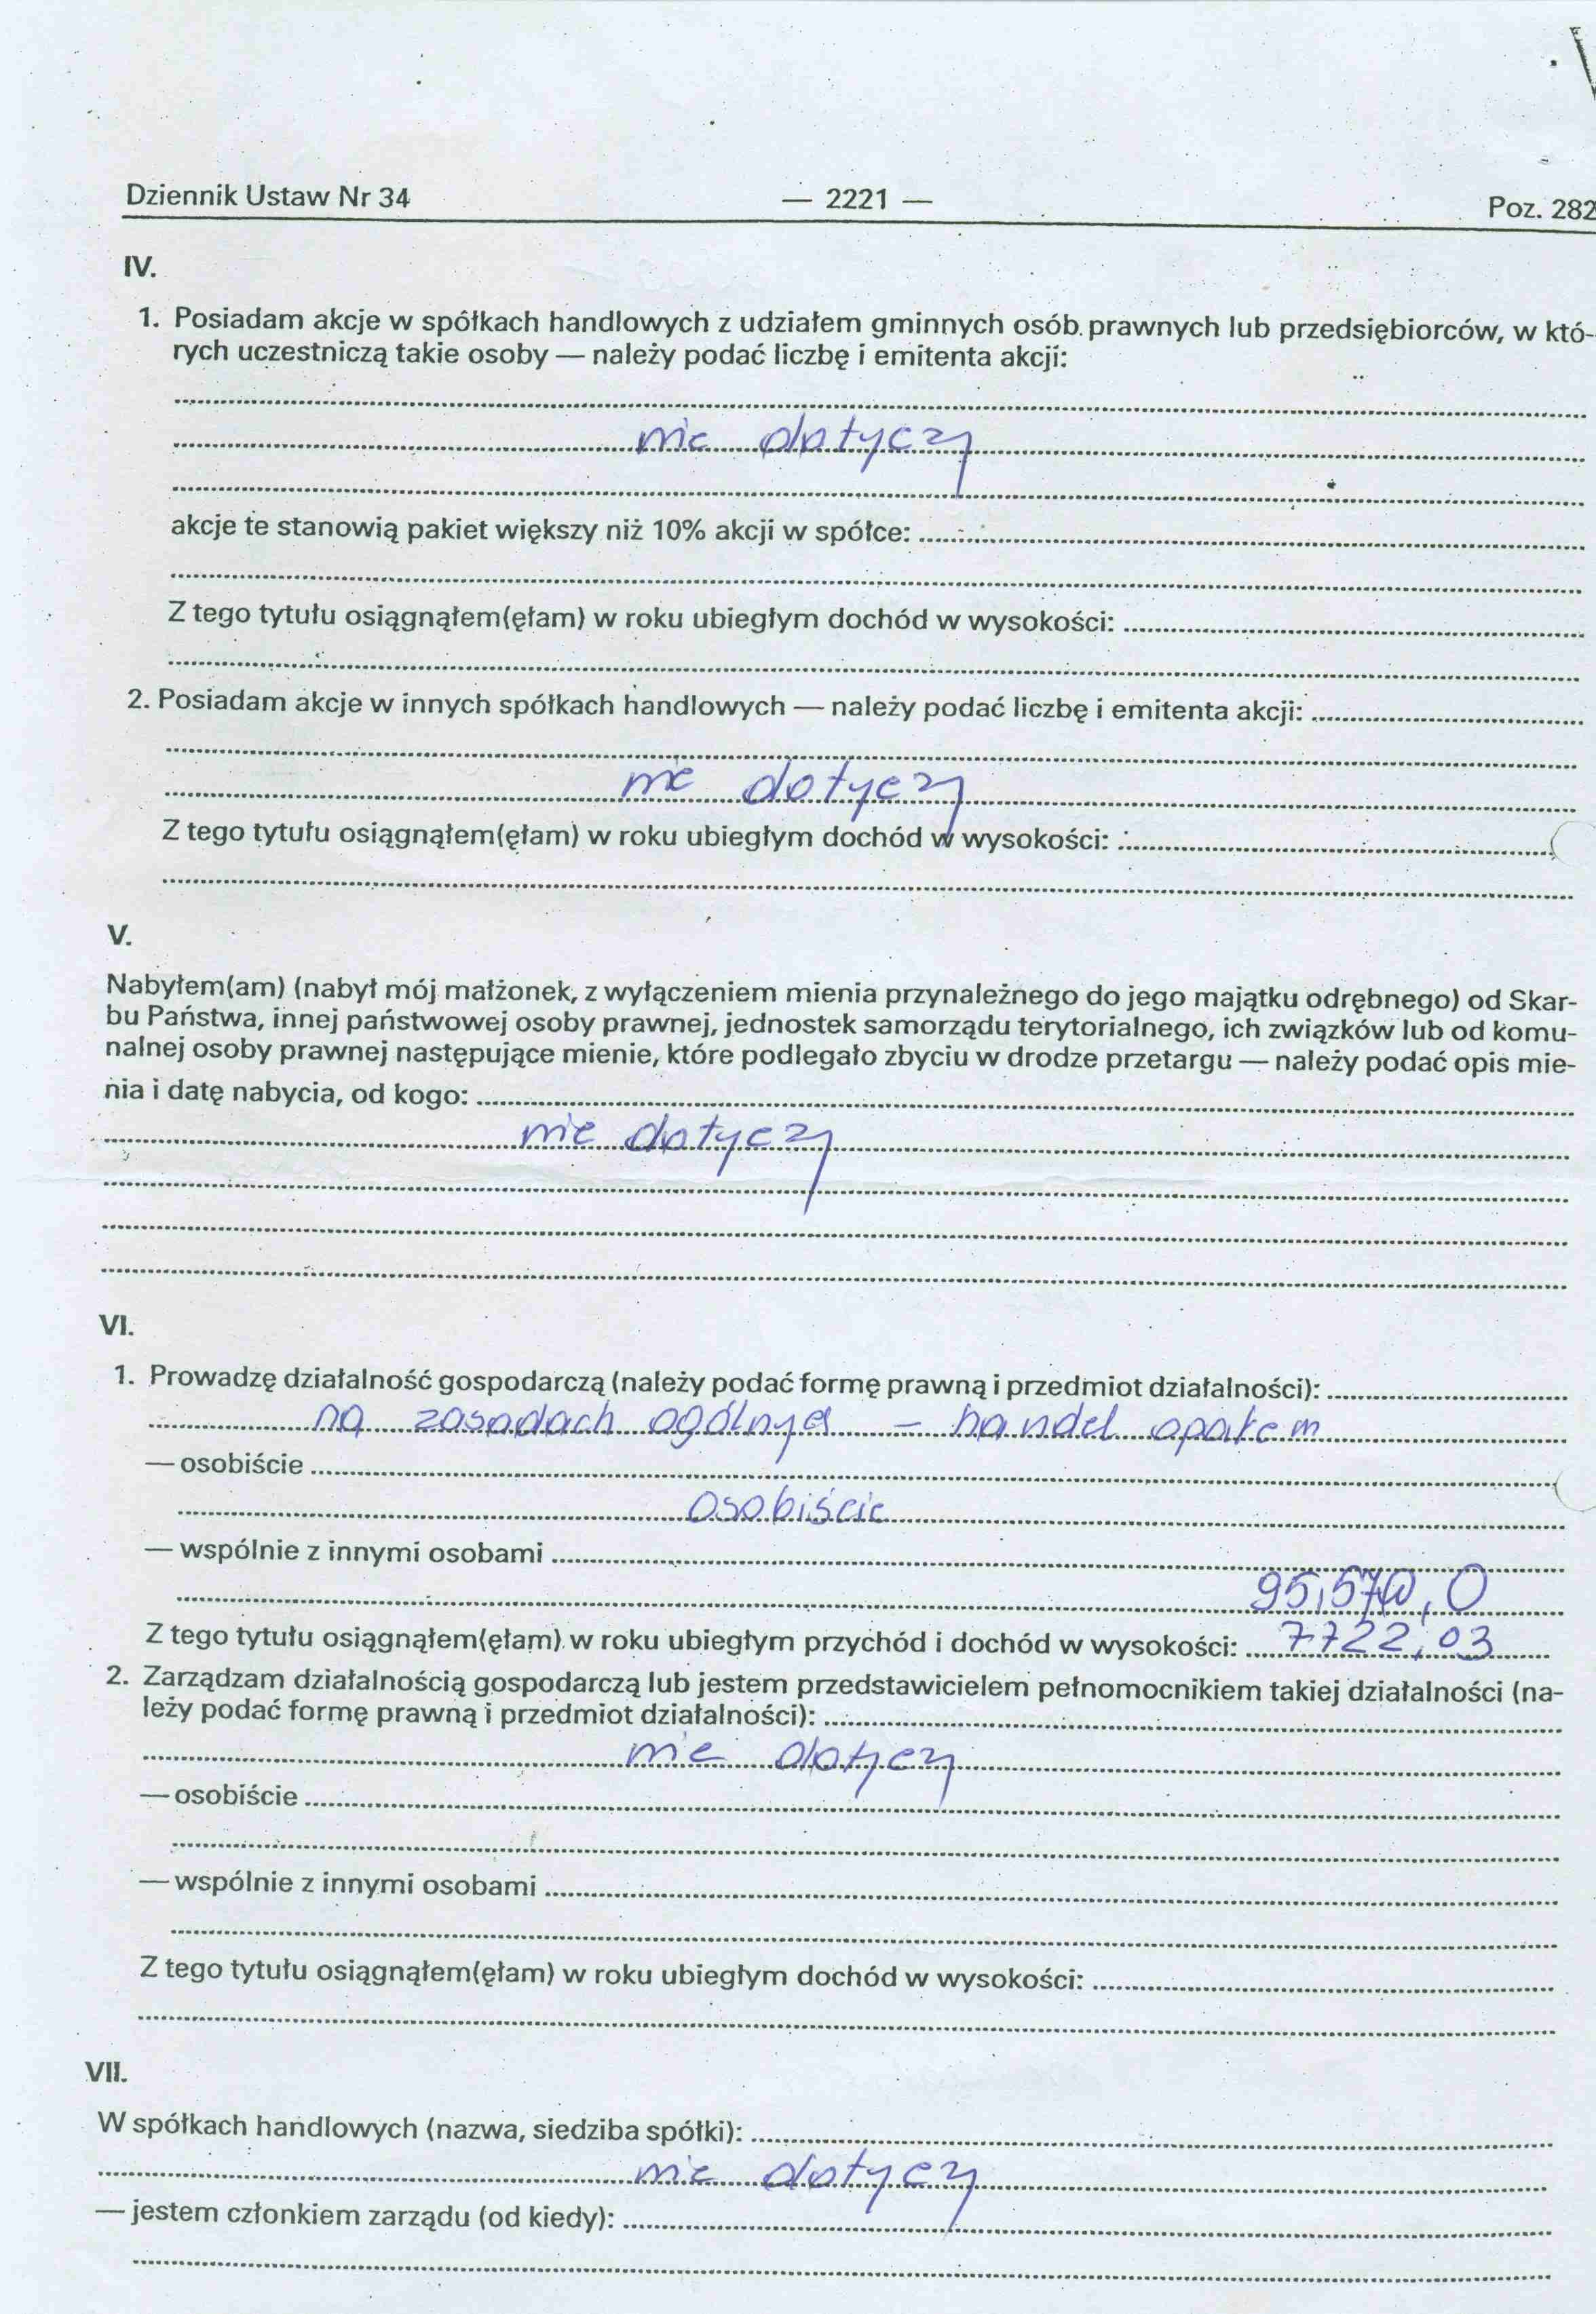 Dziennik Ustaw Nr 34 — 2221 — Poz. 282
IV.
1. Posiadam akcje w spółkach handlowych z udziałem gminnych osób prawnych lub przedsiębiorców, w któ-
rych uczestniczą takie osoby — należy podać liczbę i emitenta akcji:
nie dotyczy
akcje te stanowią pakiet większy niż 10% akcji w spółce:
Z tego tytułu osiągnąłem(ęłam) w roku ubiegłym dochód w wysokości:
2. Posiadam akcje w innych spółkach handlowych — należy podać liczbę i emitenta akcji:
nie dotyczy
Z tego tytułu osiągnąłem(ęłam) w roku ubiegłym dochód w wysokości:
V.
Nabyłem(am) (nabył mój małżonek, z wyłączeniem mienia przynależnego do jego majątku odrębnego) od Skar-
bu Państwa, innej państwowej osoby prawnej, jednostek samorządu terytorialnego, ich związków lub od komu-
nalnej osoby prawnej następujące mienie, które podlegało zbyciu w drodze przetargu — należy podać opis mie-
nia i datę nabycia, od kogo:
nie dotyczy
VI.
1. Prowadzę działalność gospodarczą (należy podać formę prawną i przedmiot działalności):
na zasadach ogólnych – handel opałem
— osobiście
osobiście
— wspólnie z innymi osobami
Z tego tytułu osiągnąłem(ęłam) w roku ubiegłym przychód i dochód w wysokości: 7722,03
2. Zarządzam działalnością gospodarczą lub jestem przedstawicielem pełnomocnikiem takiej działalności (na-
leży podać formę prawną i przedmiot działalności):
nie dotyczy
— osobiście
— wspólnie z innymi osobami
Z tego tytułu osiągnąłem(ęłam) w roku ubiegłym dochód w wysokości:
VII.
W spółkach handlowych (nazwa, siedziba spółki):
nie dotyczy
— jestem członkiem zarządu (od kiedy):